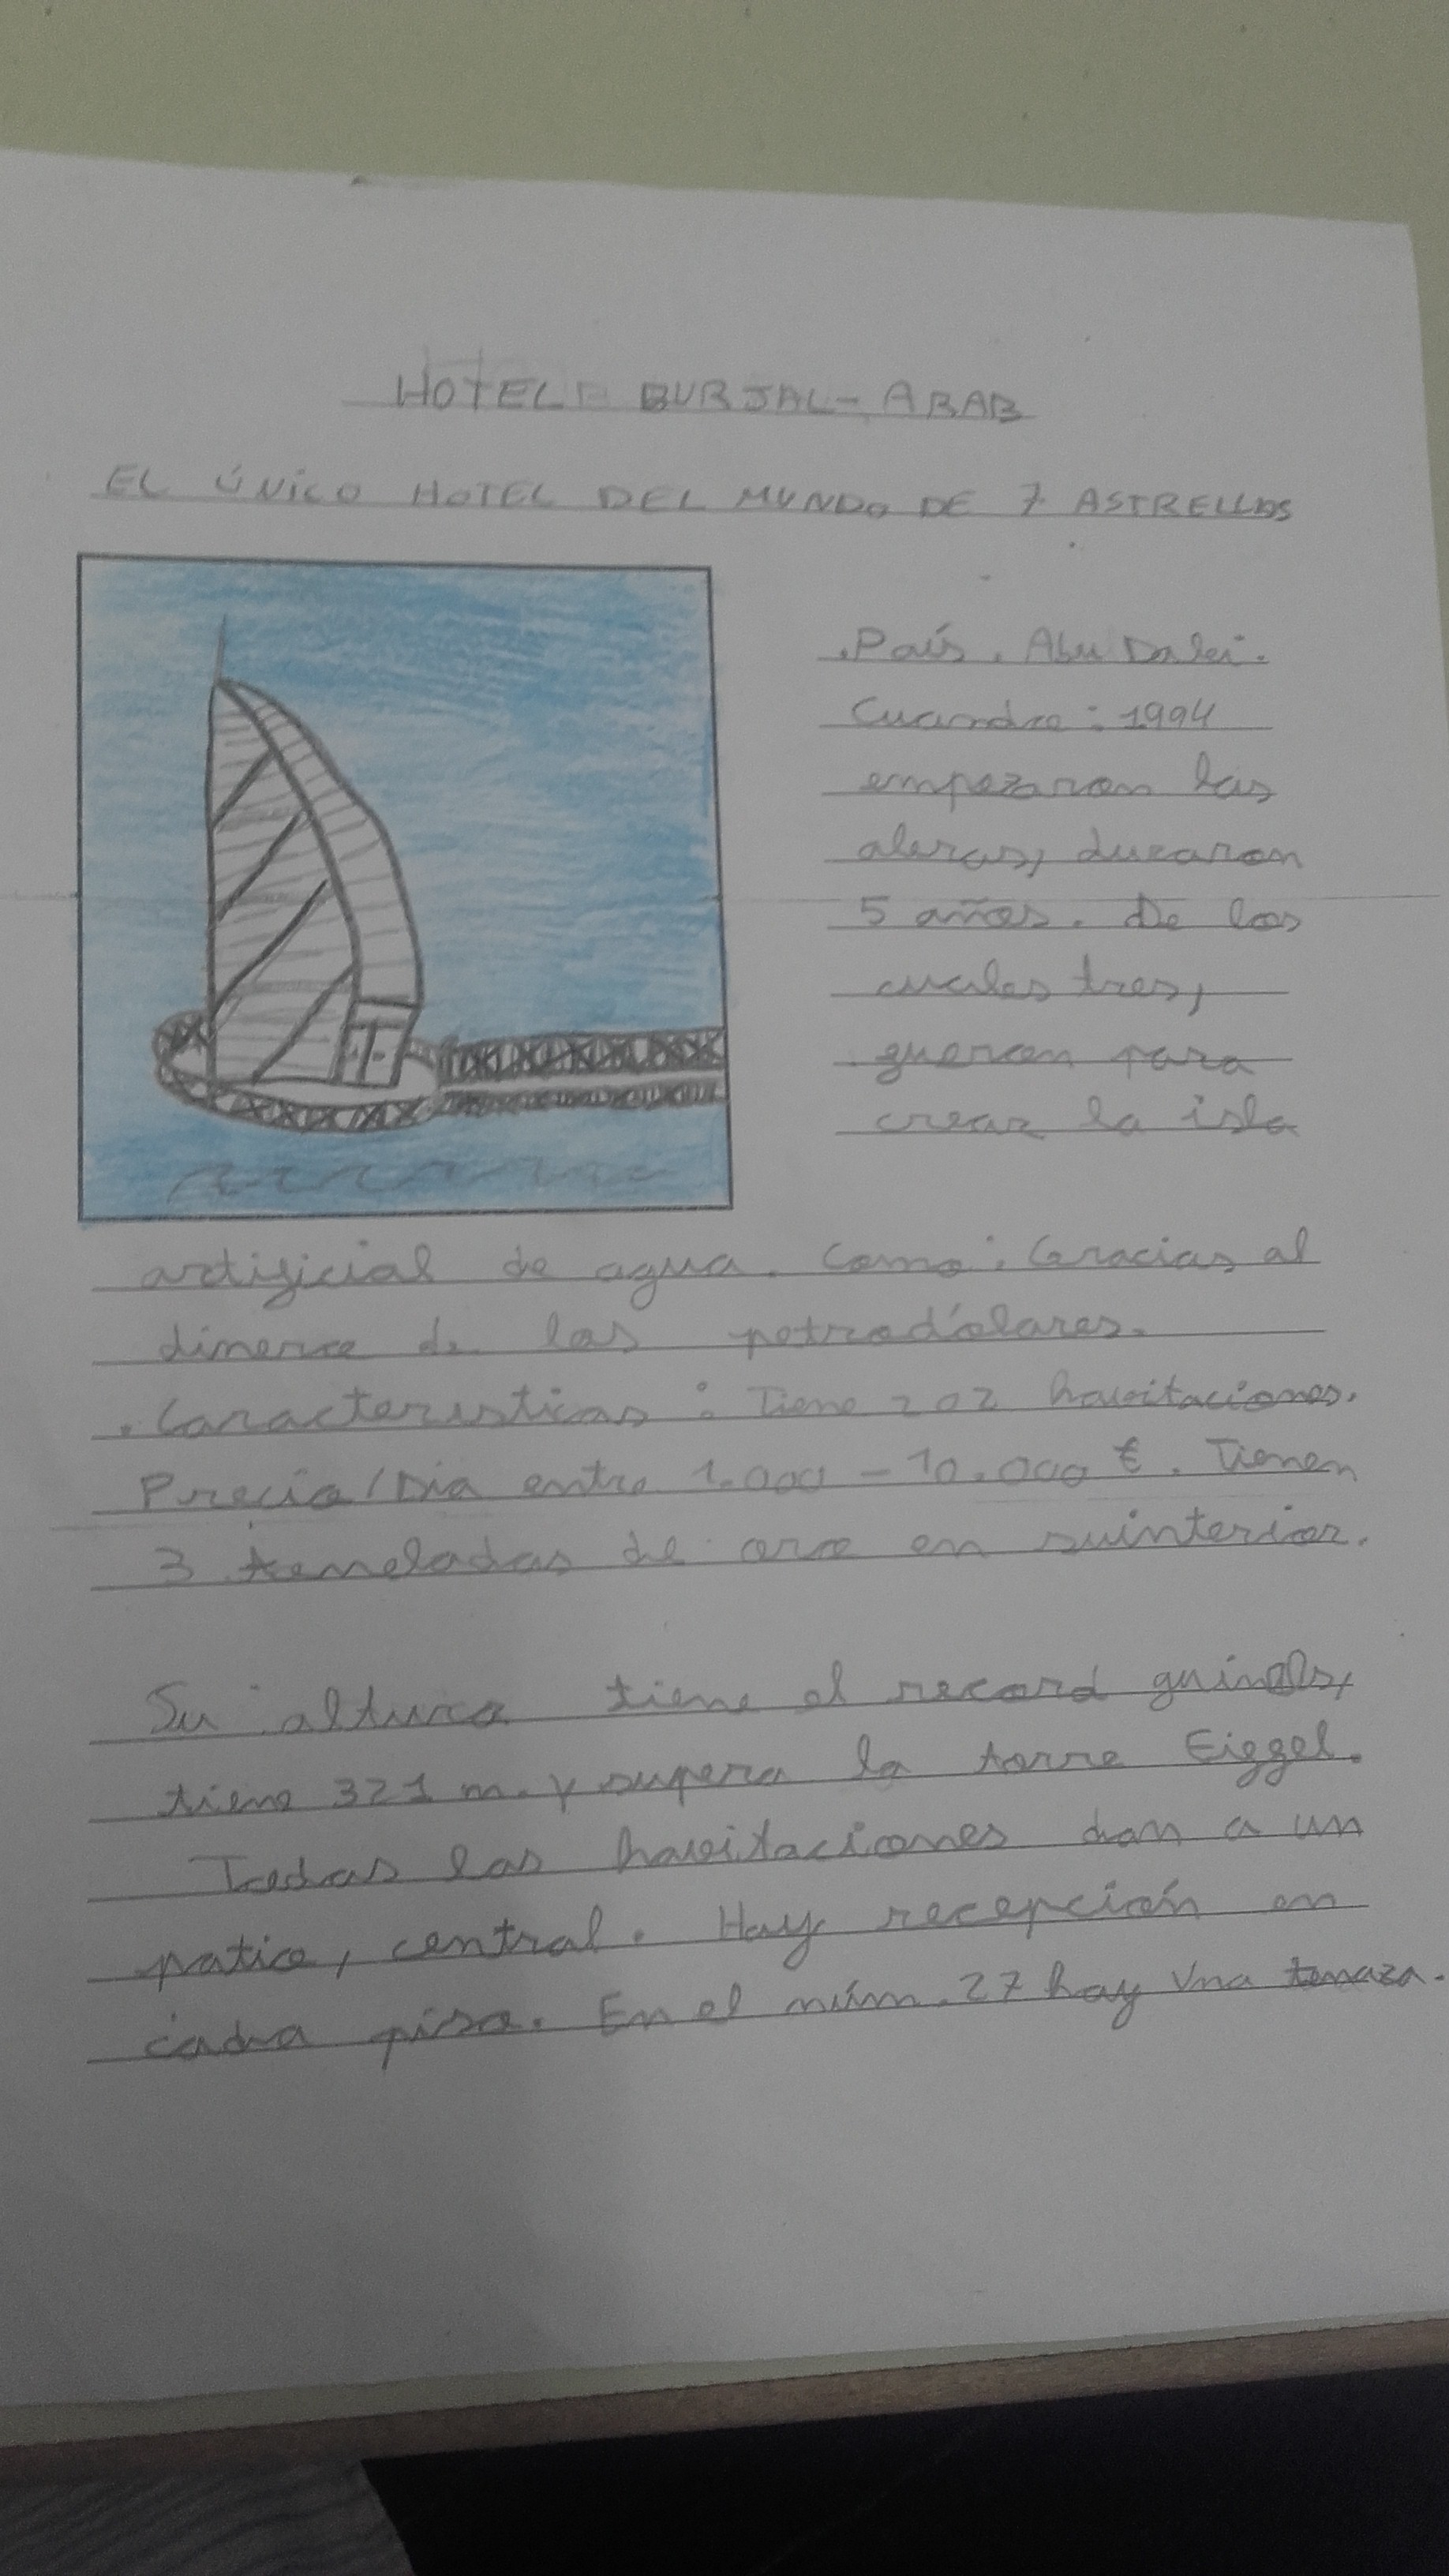 HOTEL BURJAL-ARAB
EL ÚNICO HOTEL DEL MUNDO DE 7 ASTRELLAS
.País. Abu Dabi.
Cuando: 1994
empezaron las
obras, duraron
5 años. De los
cuales tres,
fueron para
crear la isla
artificial de agua. Como: Gracias al
dinero de los petrodólares.
. Caracteristicas: Tiene 202 havitaciones.
Precio/Dia entre 1.000 - 10.000 €. Tienen
3 toneladas de oro en suinterior.
Su altura tiene el record
tiene 321 m. y supera la torre Eiffel.
Todas las havitaciones dan a un
patio, central. Hay recepción en
cada piso. En el núm. 27 hay Una